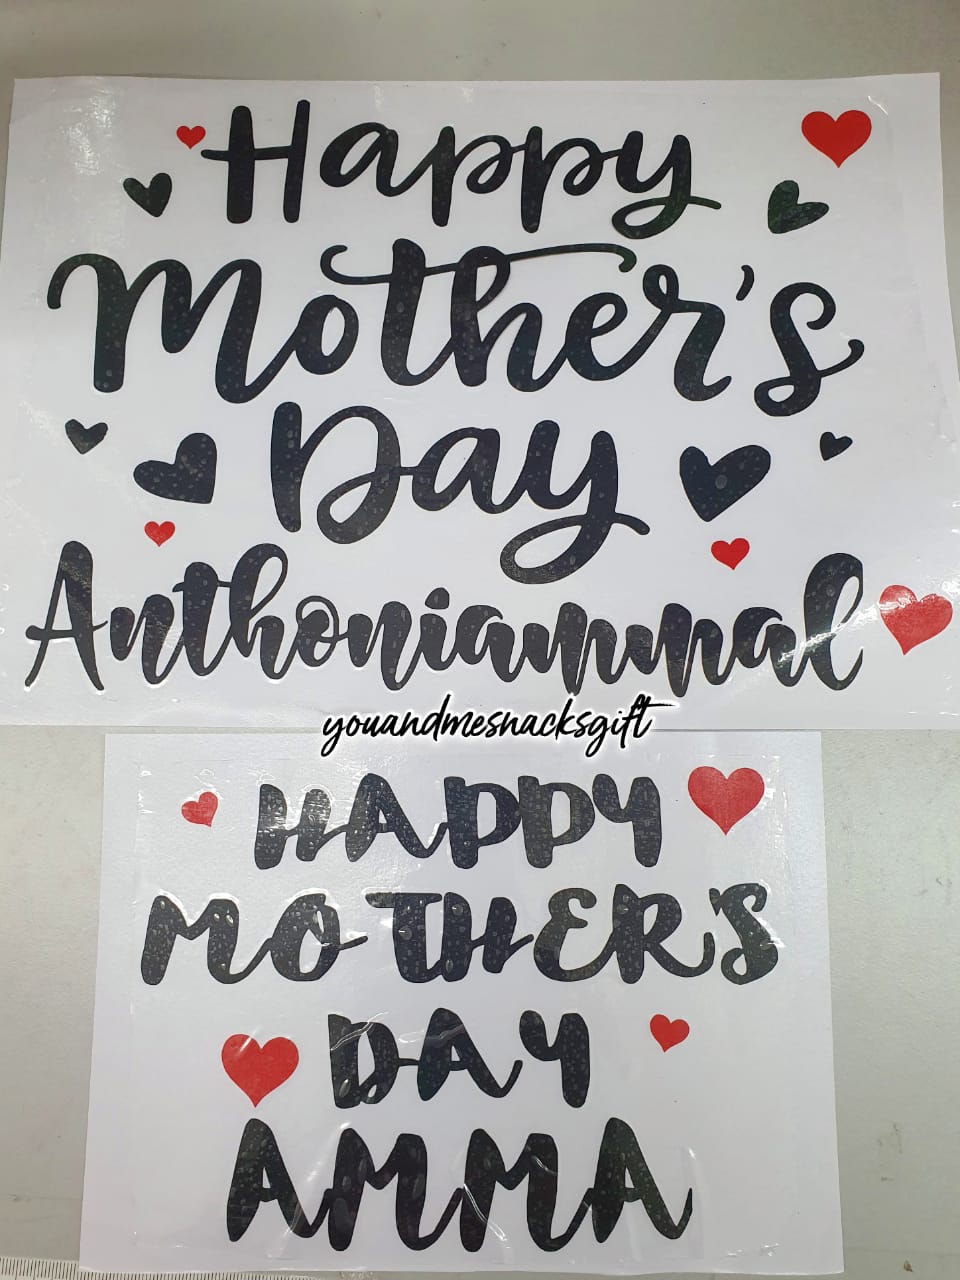 Happy
Mother's
Day
Anthoniammal
youandmesnacksgift
HAPPY
MOTHER'S
DAY
AMMA